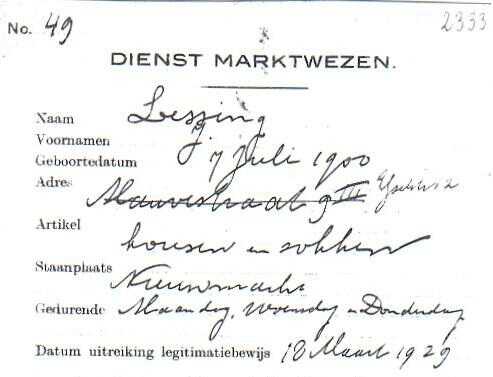 No. 49 2333
DIENST MARKTWEZEN.
Naam Lessing
Voornamen J.
Geboortedatum 7 Juli 1900
Adres Mauvestraat 9 III
Artikel kousen en sokken
Staanplaats Nieuwmarkt
Gedurende Maandag, Woensdag en Donderdag
Datum uitreiking legitimatiebewijs 18 Maart 1929